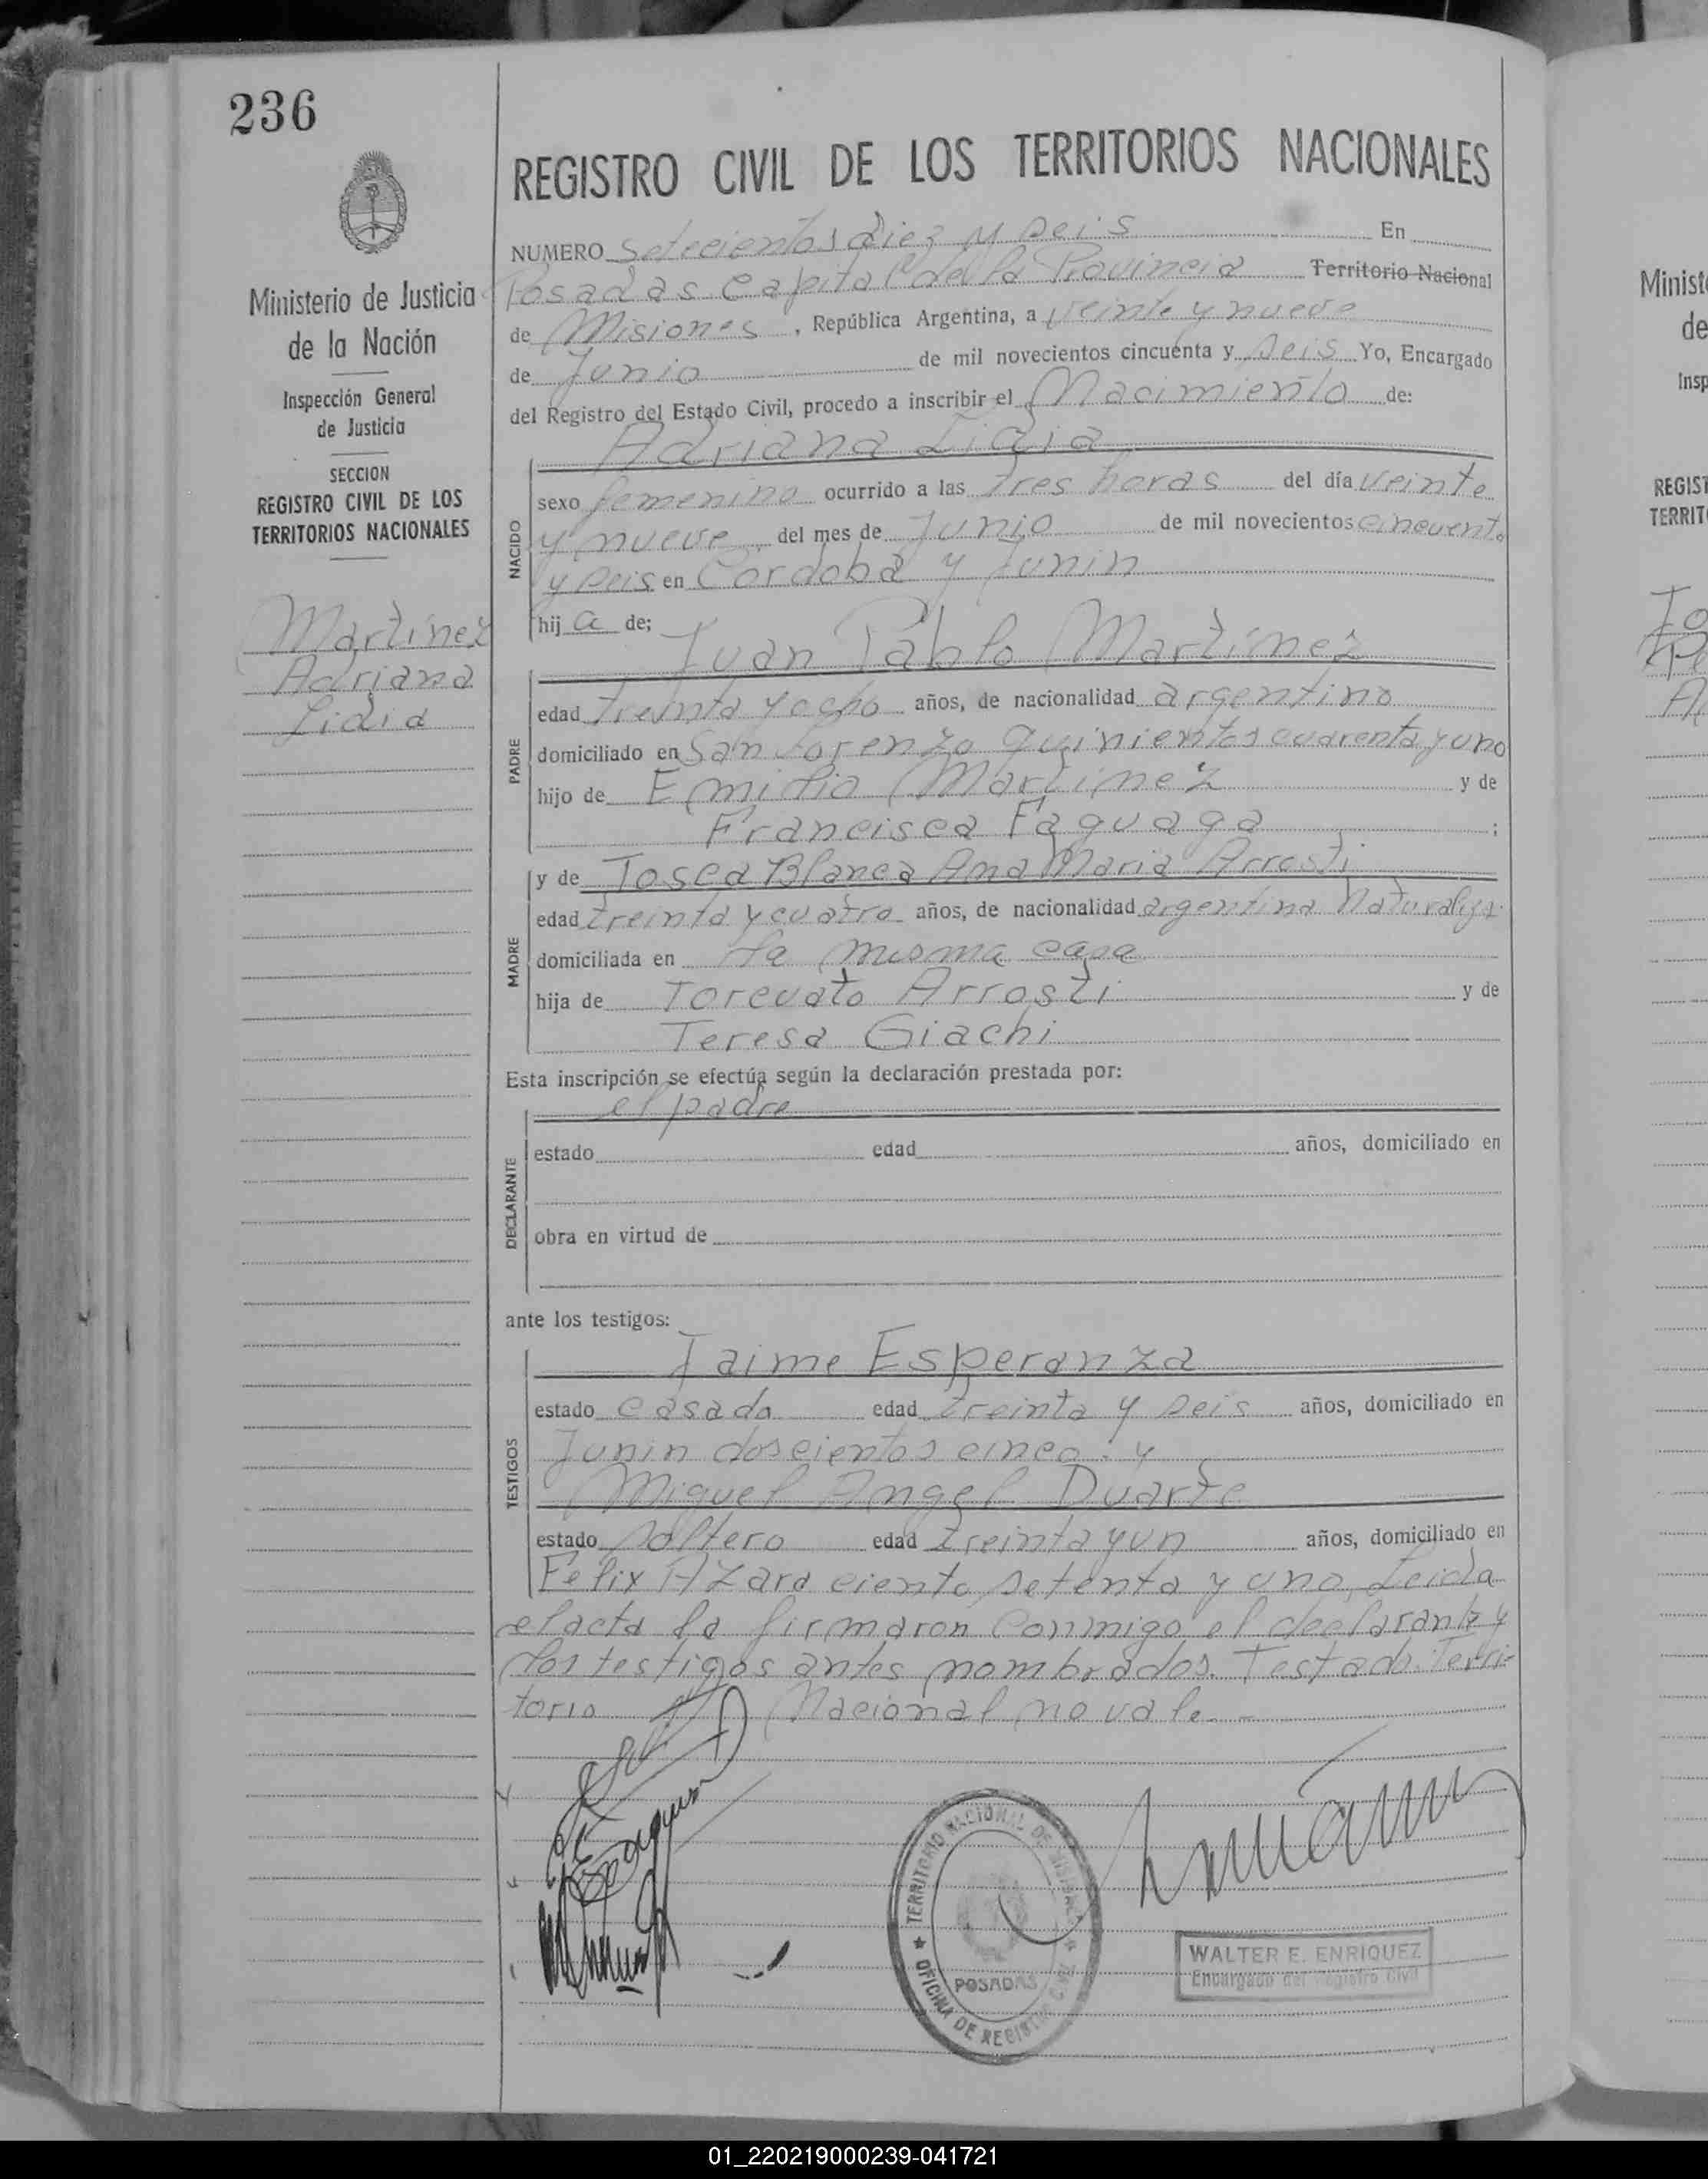 236
REGISTRO CIVIL DE LOS TERRITORIOS NACIONALES
Ministerio de Justicia
de la Nación
Inspección General
de Justicia
SECCION
REGISTRO CIVIL DE LOS
TERRITORIOS NACIONALES
Martinez
Adriana
Lidia
NUMERO Setecientos diez y seis En
Posadas Capital de la Provincia Territorio Nacional
de Misiones, República Argentina, a veinte y nueve
de Junio de mil novecientos cincuenta y seis Yo, Encargado
del Registro del Estado Civil, procedo a inscribir el Nacimiento de:
Adriana Lidia
NACIDO
sexo femenino ocurrido a las tres horas del día veinte
y nueve del mes de Junio de mil novecientos cincuenta
y seis en Cordoba y Junin
hij a de;
Juan Pablo Martinez
PADRE
edad treinta y ocho años, de nacionalidad argentino
domiciliado en San Lorenzo quinientos cuarenta y uno
hijo de Emilio Martinez y de
Francisca Faguaga ;
MADRE
y de Tosca Blanca Ana Maria Arrosti
edad treinta y cuatro años, de nacionalidad argentina
domiciliada en la misma casa
hija de Torcuato Arrosti y de
Teresa Giachi
Esta inscripción se efectúa según la declaración prestada por:
el padre
DECLARANTE
estado edad años, domiciliado en
obra en virtud de
ante los testigos:
Jaime Esperanza
TESTIGOS
estado casado edad treinta y seis años, domiciliado en
Junin doscientos cinco: y
Miguel Angel Duarte
estado soltero edad treinta y un años, domiciliado en
Felix Azara ciento setenta y uno, Leida
el acta la firmaron conmigo el declarante y
los testigos antes nombrados. Testado: Terri-
torio Nacional no vale.-
TERRITORIO NACIONAL DE MISIONES
OFICINA DE REGISTRO CIVIL
POSADAS
WALTER E. ENRIQUEZ
Encargado del Registro Civil
Minist
de
Insp
REGIST
TERRIT
01_220219000239-041721